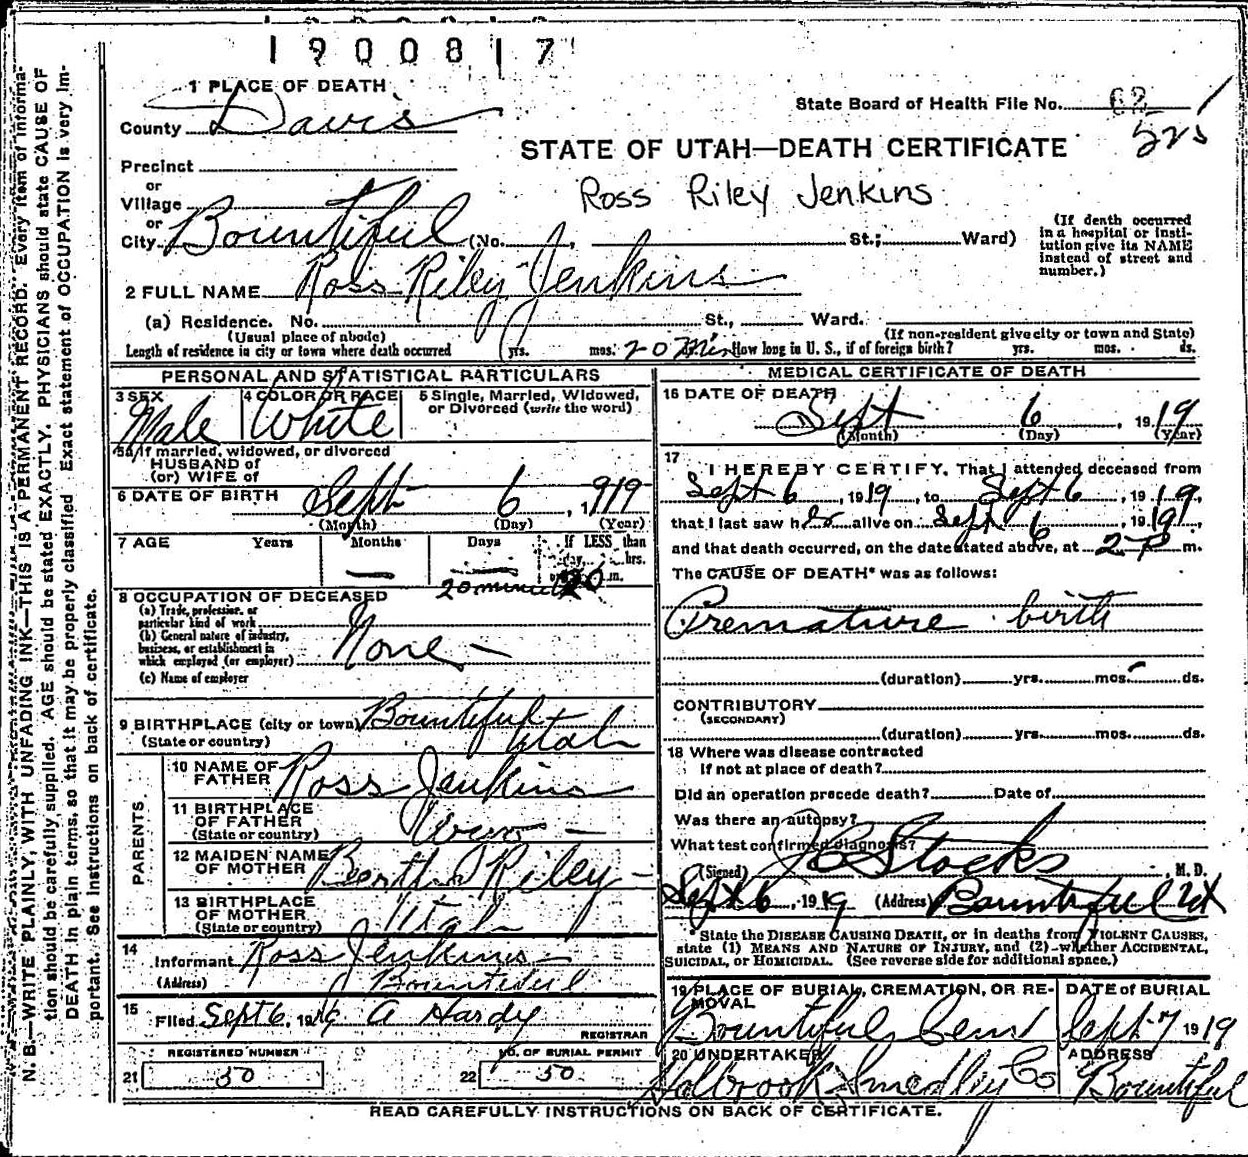 1900817
1 PLACE OF DEATH
County Davis
State Board of Health File No. 62
525
STATE OF UTAH—DEATH CERTIFICATE
Precinct
or
Village
Ross Riley Jenkins
or
City Bountiful (No. , St.; Ward)
(If death occurred in a hospital or insti-
tution give its NAME
instead of street and
number.)
2 FULL NAME Ross Riley Jenkins
(a) Residence. No. St., Ward.
(Usual place of abode) (If non-resident give city or town and State)
Length of residence in city or town where death occurred yrs. mos. 20 Min How long in U. S., if of foreign birth? yrs. mos. ds.
PERSONAL AND STATISTICAL PARTICULARS
3 SEX 4 COLOR OR RACE 5 Single, Married, Widowed,
or Divorced (write the word)
Male White
5a If married, widowed, or divorced
HUSBAND of
(or) WIFE of
6 DATE OF BIRTH Sept 6, 1919
(Month) (Day) (Year)
7 AGE Years Months Days If LESS than
day, hrs.
or 20 m.
20 minutes
8 OCCUPATION OF DECEASED
(a) Trade, profession, or
particular kind of work
(b) General nature of industry,
business, or establishment in
which employed (or employer) None
(c) Name of employer
9 BIRTHPLACE (city or town) Bountiful
(State or country) Utah
PARENTS.
10 NAME OF
FATHER Ross Jenkins
11 BIRTHPLACE
OF FATHER
(State or country)
12 MAIDEN NAME
OF MOTHER Bertha Riley
13 BIRTHPLACE
OF MOTHER
(State or country) Utah
14
Informant Ross Jenkins
(Address) Bountiful
15
Filed Sept 6, 1919 A Hardy
REGISTRAR
REGISTERED NUMBER NO. OF BURIAL PERMIT
21 50 22 50
MEDICAL CERTIFICATE OF DEATH
16 DATE OF DEATH
Sept 6, 1919
(Month) (Day) (Year)
17
I HEREBY CERTIFY, That I attended deceased from
Sept 6, 1919, to Sept 6, 1919,
that I last saw h alive on Sept 6, 1919,
and that death occurred, on the date stated above, at 2 P m.
The CAUSE OF DEATH* was as follows:
Premature birth
(duration) yrs. mos. ds.
CONTRIBUTORY
(SECONDARY)
(duration) yrs. mos. ds.
18 Where was disease contracted
If not at place of death?
Did an operation precede death? Date of
Was there an autopsy?
What test confirmed diagnosis?
(Signed) J C Stocks, M. D.
Sept 6, 1919 (Address) Bountiful Ut
State the DISEASE CAUSING DEATH, or in deaths from VIOLENT CAUSES,
state (1) MEANS AND NATURE OF INJURY, and (2) whether ACCIDENTAL,
SUICIDAL, or HOMICIDAL. (See reverse side for additional space.)
19 PLACE OF BURIAL, CREMATION, OR RE-
MOVAL DATE of BURIAL
Bountiful Cem Sept 7 1919
20 UNDERTAKER ADDRESS
Holbrook Smedley Co Bountiful
READ CAREFULLY INSTRUCTIONS ON BACK OF CERTIFICATE.
N. B.—WRITE PLAINLY, WITH UNFADING INK—THIS IS A PERMANENT RECORD. Every item of informa-
tion should be carefully supplied. AGE should be stated EXACTLY. PHYSICIANS should state CAUSE OF
DEATH in plain terms, so that it may be properly classified. Exact statement of OCCUPATION is very im-
portant. See instructions on back of certificate.